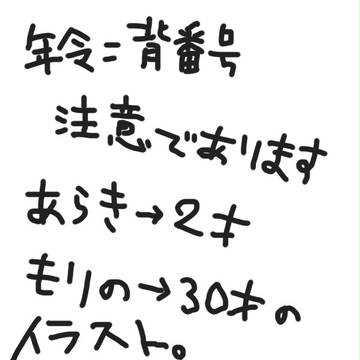 年令=背番号
注意であります
あらき→2才
もりの→30才の
イラスト。